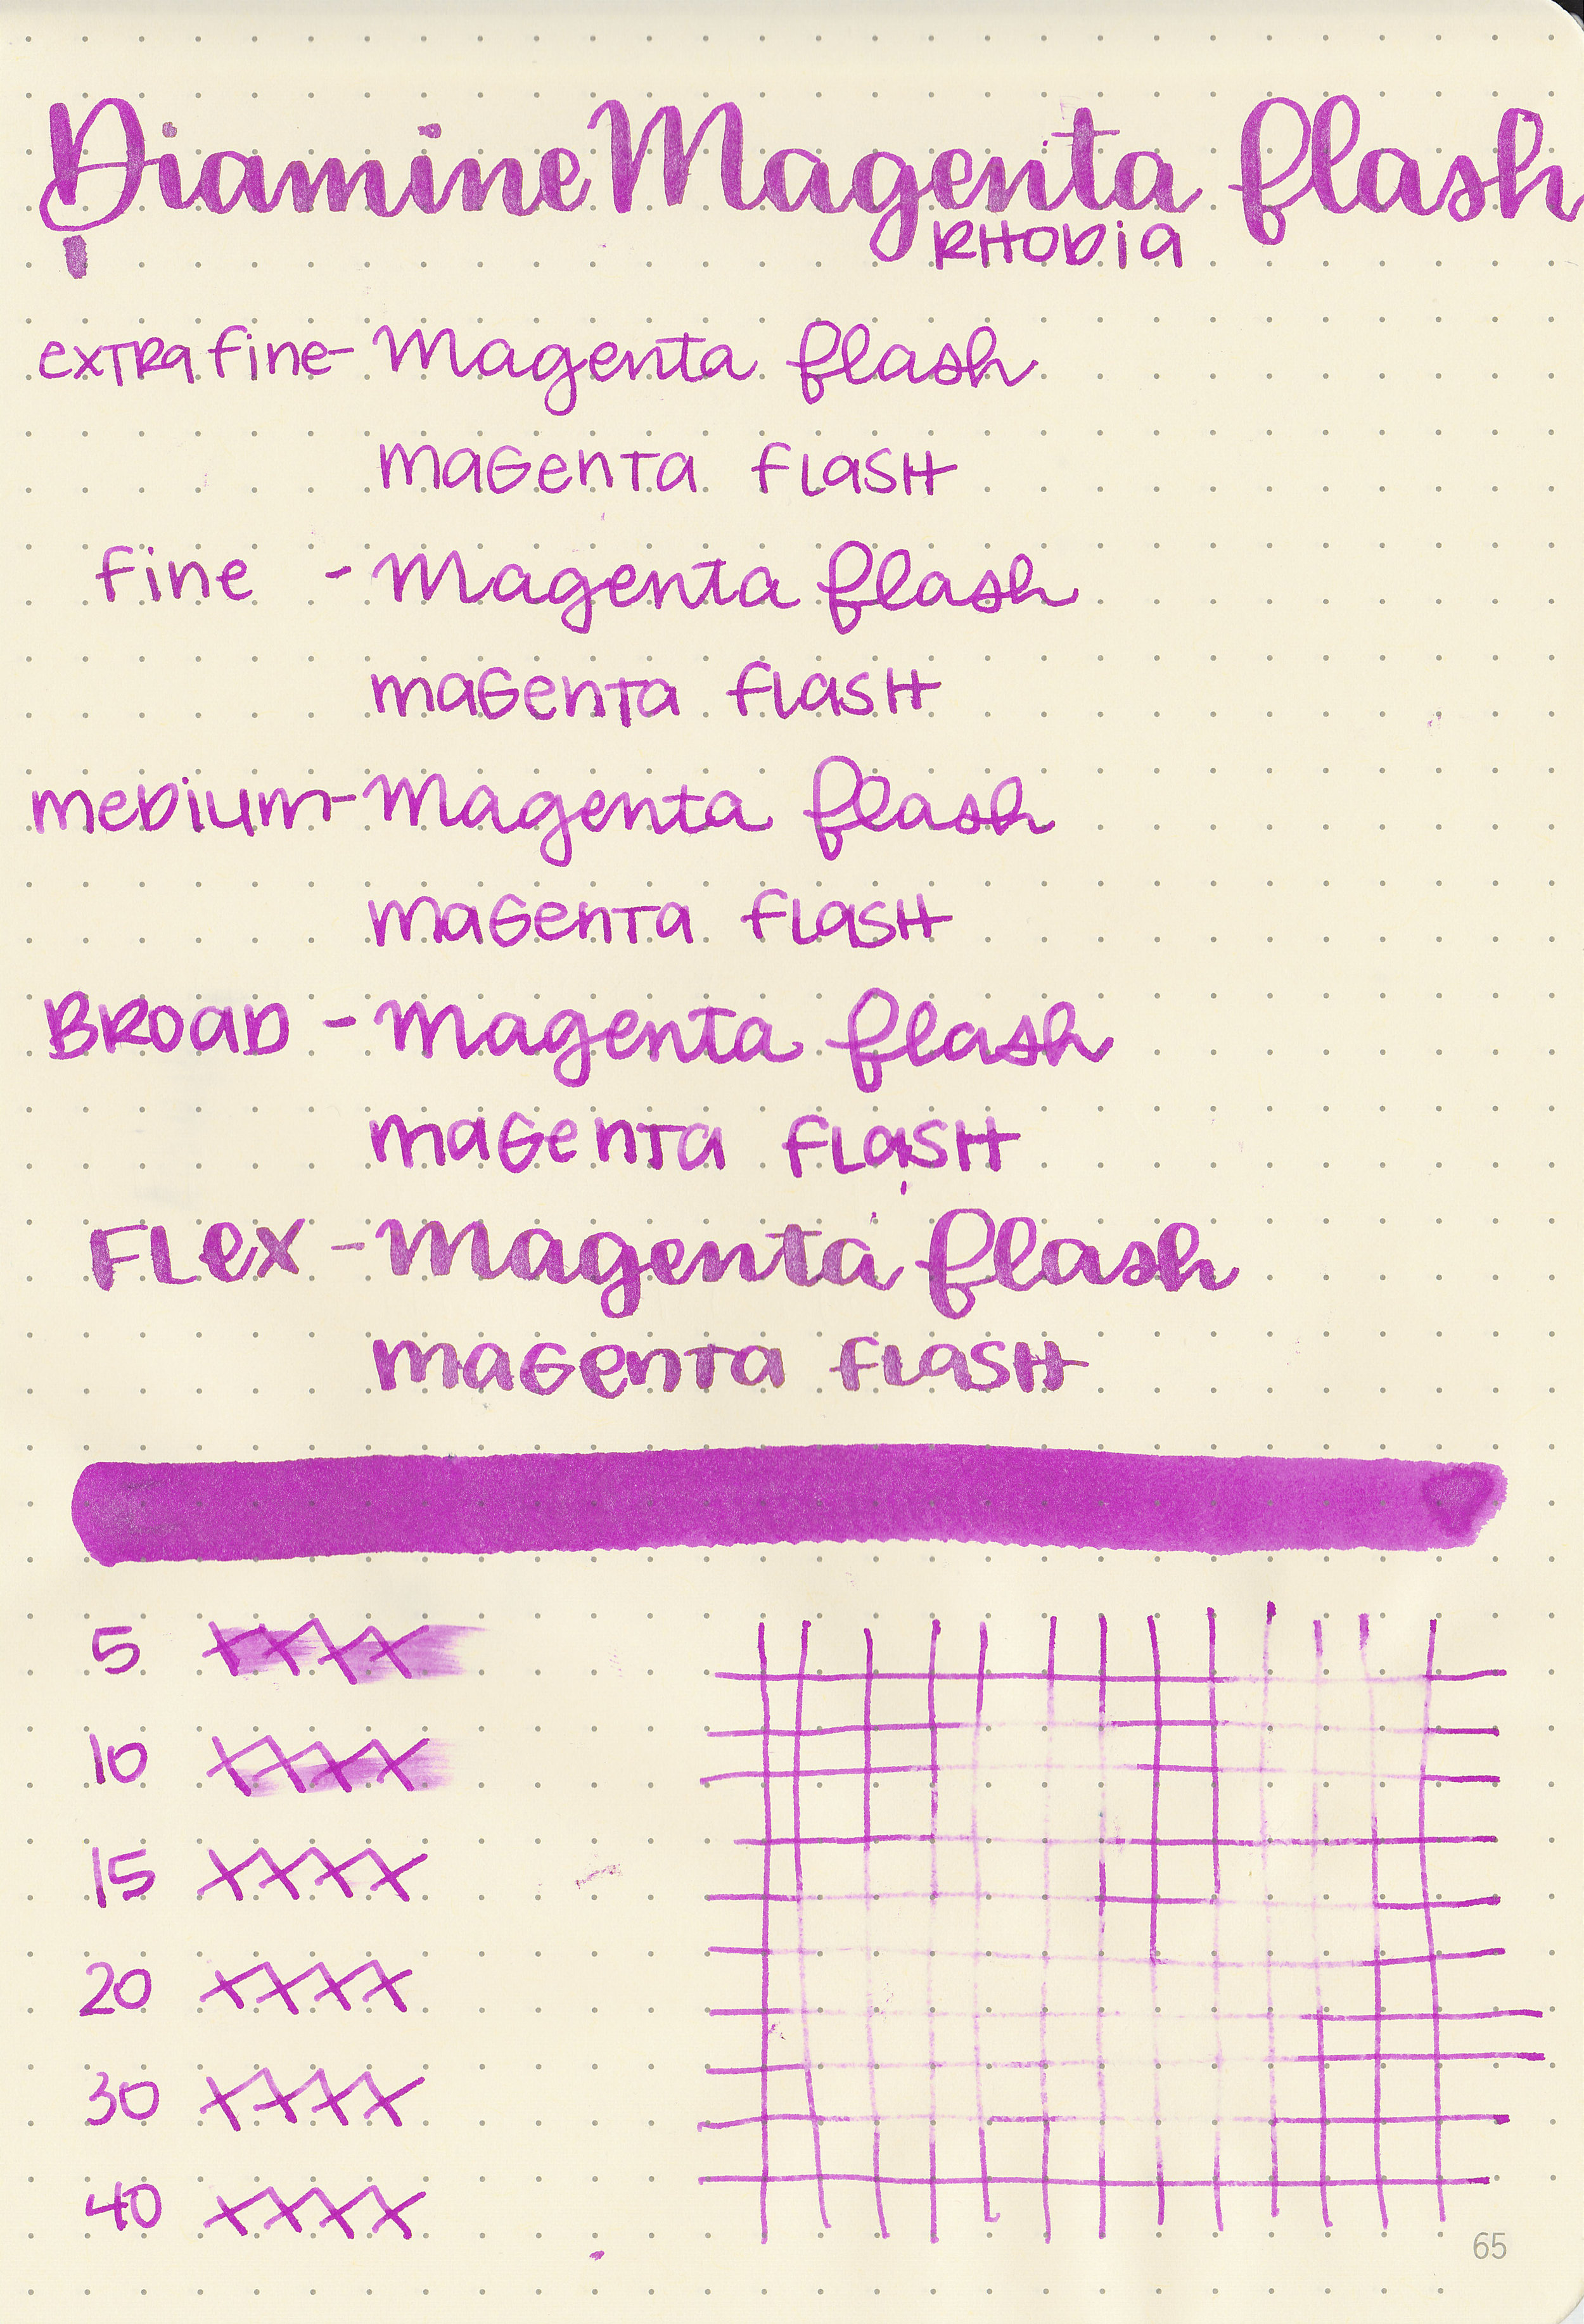 Diamine Magenta flash
RHODia
exTRa fine- Magenta flash
maGenTa fLaSH
fine - Magenta flash
maGenTa fLaSH
meDium- Magenta flash
maGenTa fLaSH
BROaD - Magenta flash
maGenTa fLaSH
FLex - Magenta flash
maGenTa fLaSH
5 xxxx
10 xxxx
15 xxxx
20 xxxx
30 xxxx
40 xxxx
65